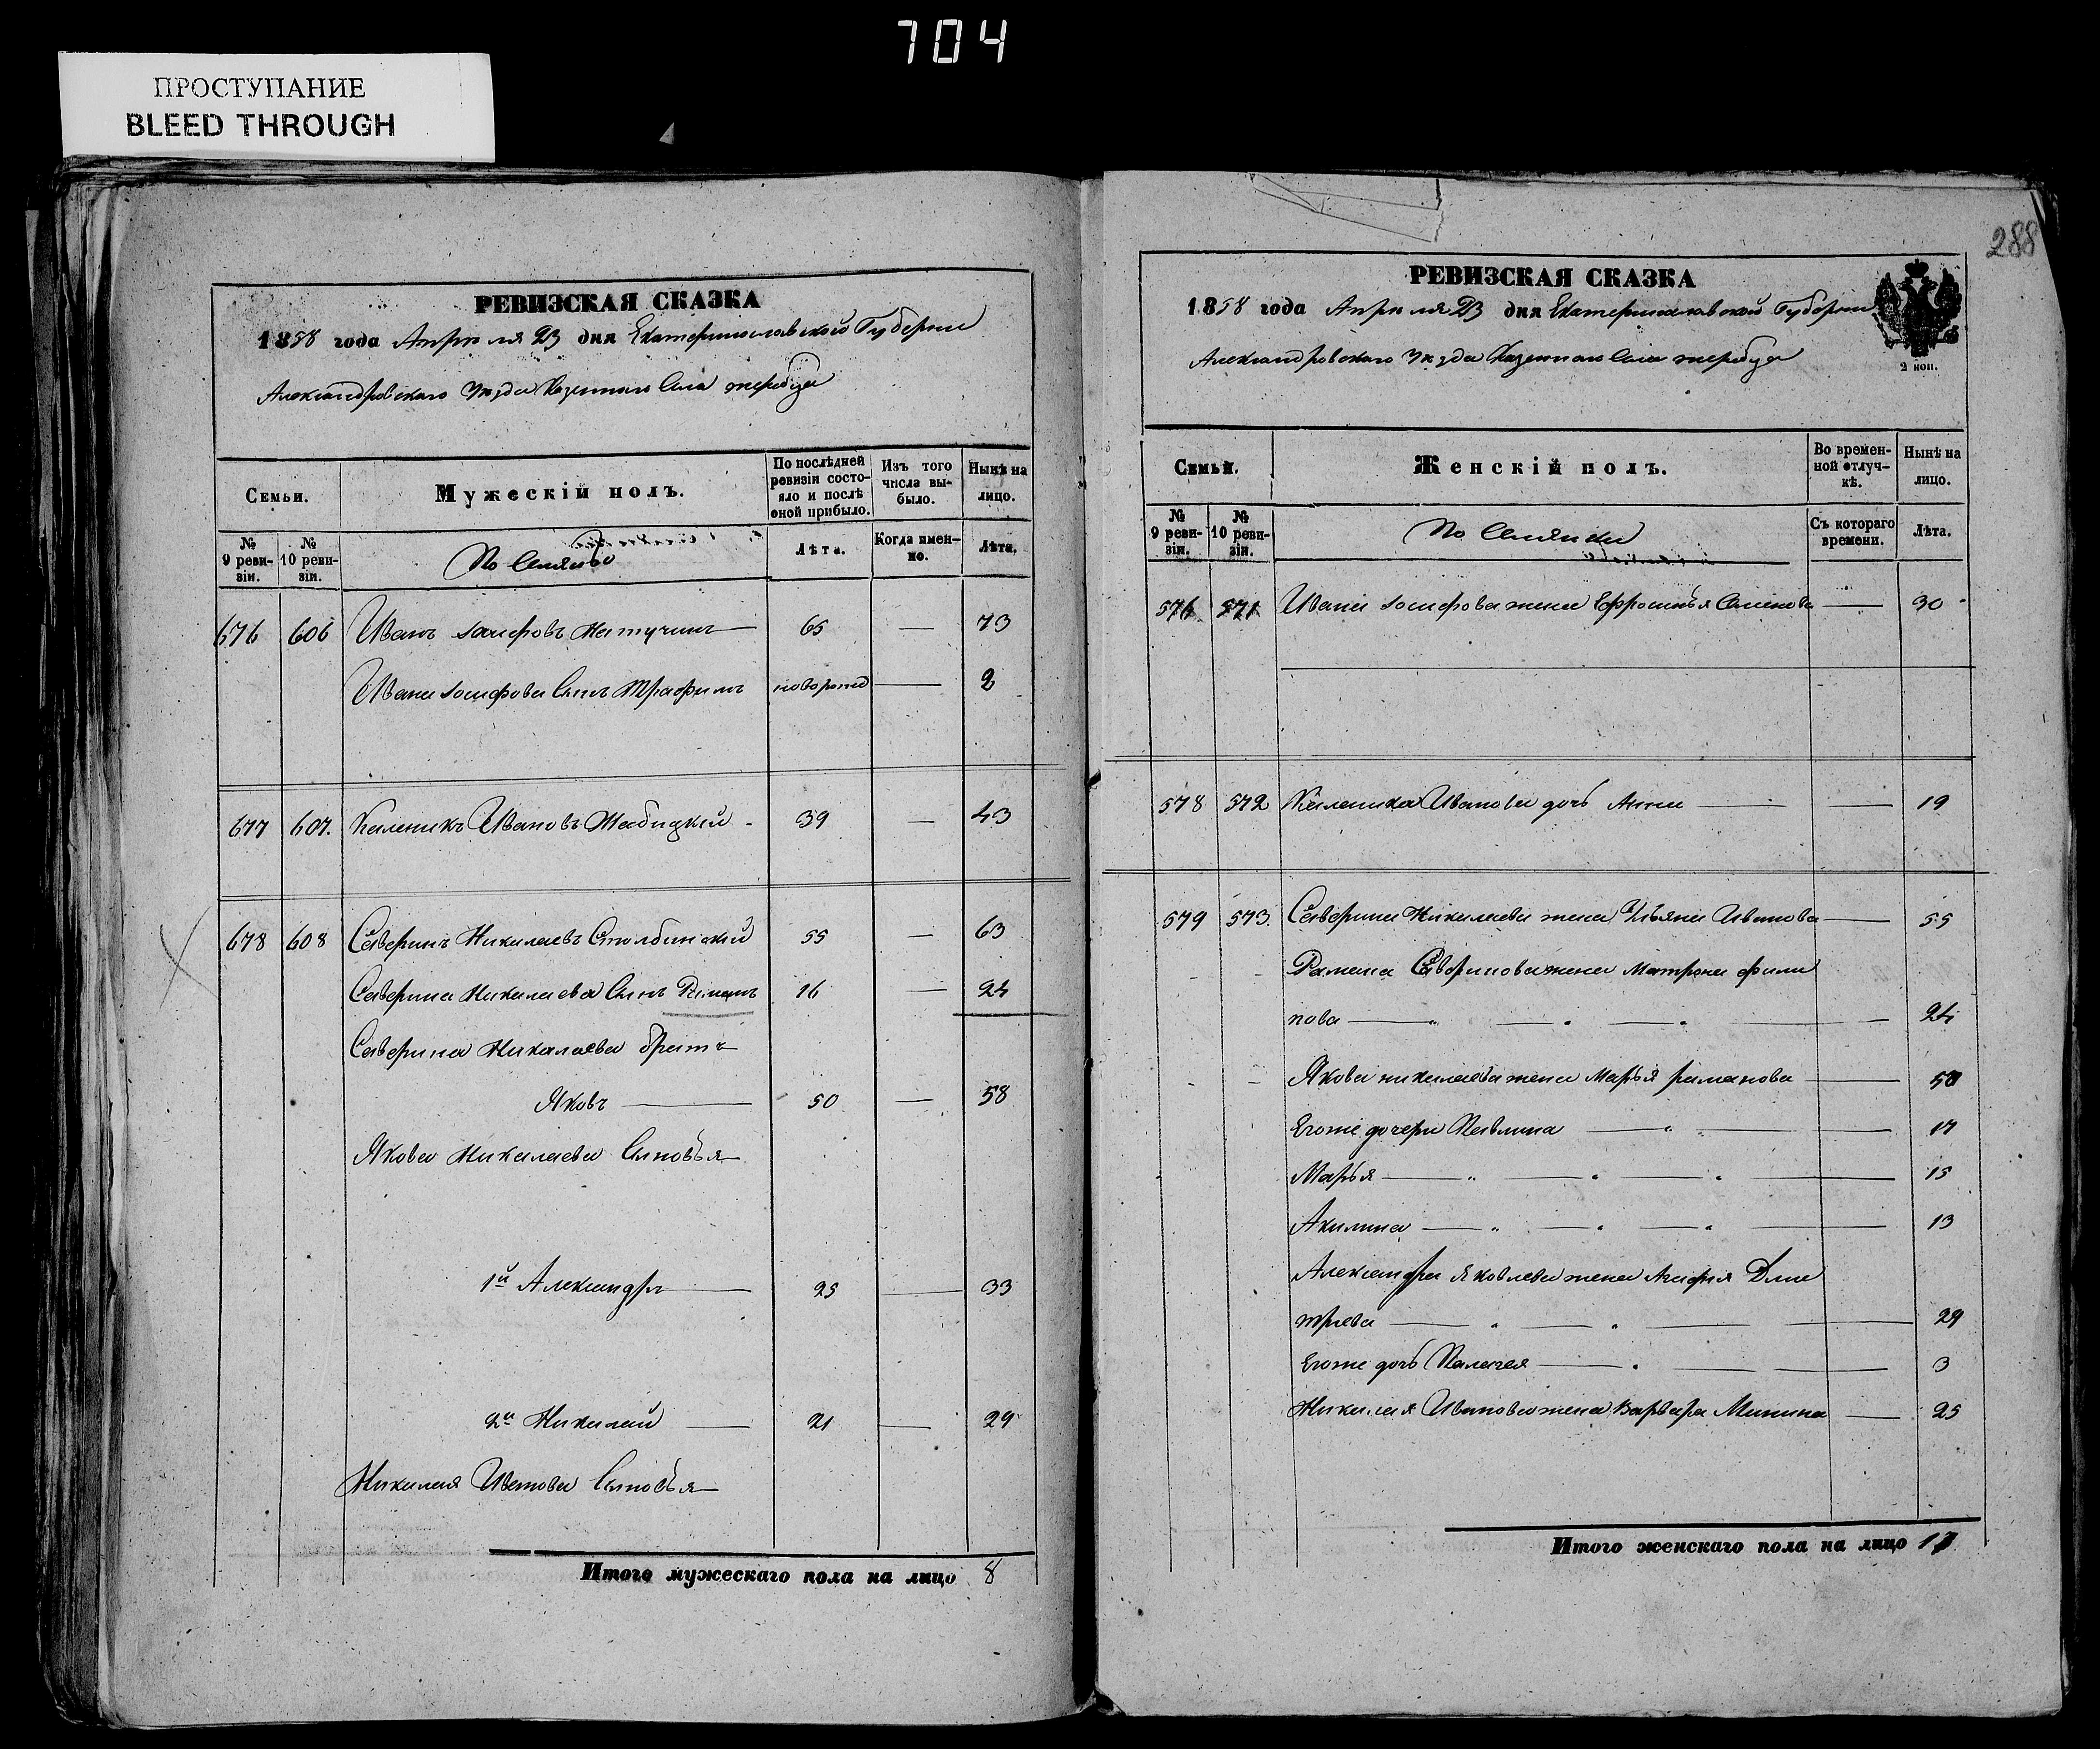 704
ПРОСТУПАНИЕ
BLEED THROUGH
РЕВИЗСКАЯ СКАЗКА
1858 года Апреля 23 дня Екатеринославской Губернии
Александровскаго Уезда Казеннаго Села
Семьи.
Мужескій полъ.
По послѣдней ревизіи состояло и послѣ оной прибыло.
Изъ того числа выбыло.
Нынѣ на лицо.
№ 9 ревизіи.
№ 10 ревизіи.
Лѣта.
Когда именно.
Лѣта.
676 606 Иванъ Іосифовъ 65 — 73
Ивана Іосифова Сынъ Трафимъ новорожд — 2
677 607. Каленикъ Ивановъ 39 — 43
678 608 Северинъ Николаевъ Столбинский 55 — 63
Северина Николаева Сынъ Романъ 16 — 24
Северина Николаева братъ
Яковъ — 50 — 58
Якова Николаева Сыновья
1й Александръ — 25 — 33
2й Николай — 21 — 29
Николая Иванова Сыновья
Итого мужескаго пола на лицо 8
288
РЕВИЗСКАЯ СКАЗКА
1858 года Апреля 23 дня Екатеринославской Губернии
Александровскаго Уезда Казеннаго Села
2 коп.
Семьи.
Женскій полъ.
Во временной отлучкѣ.
Нынѣ на лицо.
№ 9 ревизіи.
№ 10 ревизіи.
Съ котораго времени.
Лѣта.
576 571 Ивана Іосифова жена Ефросинья — 30
578 572 Каленика Иванова дочь Анна — 19
579 573. Северина Николаева жена Ульяна Иванова — 55
Романа Северинова жена Матрона Фили
пова — 24
Якова Николаева жена Марья Романова — 50
Егоже дочери Павлина — 17
Марья — 15
Акилина — 13
Александра Яковлева жена Агафия Дми
трева — 29
Егоже дочь Палагея — 3
Николая Иванова жена Варвара Минина — 25
Итого женскаго пола на лицо 11